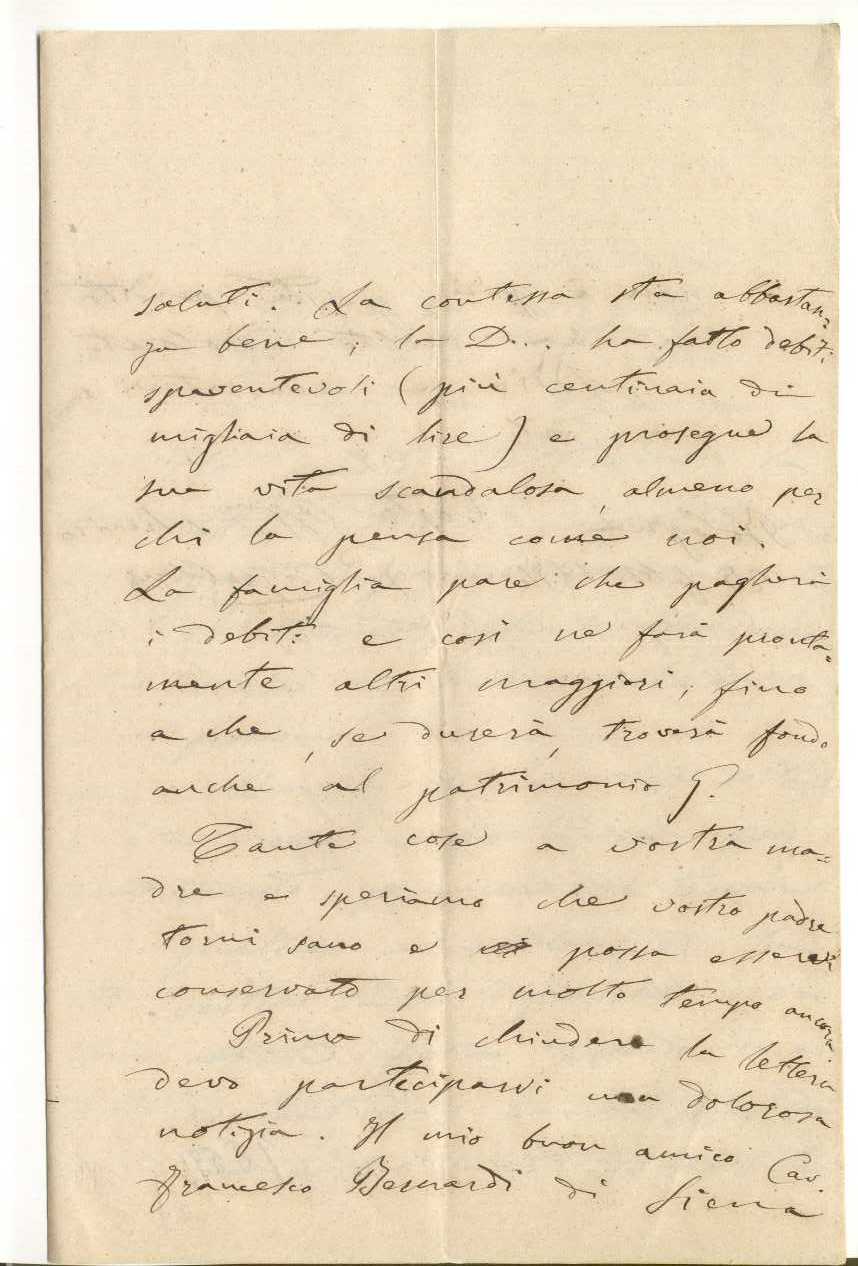 saluti. La contessa sta abbastan=
za bene; la D... ha fatto debiti
spaventevoli (più centinaia di
migliaia di lire) e prosegue la
sua vita scandalosa, almeno per
chi la pensa come noi.
La famiglia pare che pagherà
i debiti e così ne farà pronta=
mente altri maggiori; fino
a che, se durerà, troverà fondo
anche al patrimonio P.
Tante cose a vostra ma=
dre e speriamo che vostro padre
torni sano e possa esservi
conservato per molto tempo ancora.
Prima di chiudere la lettera
devo parteciparvi una dolorosa
notizia. Il mio buon amico Cav.
Francesco Bernardi di Siena